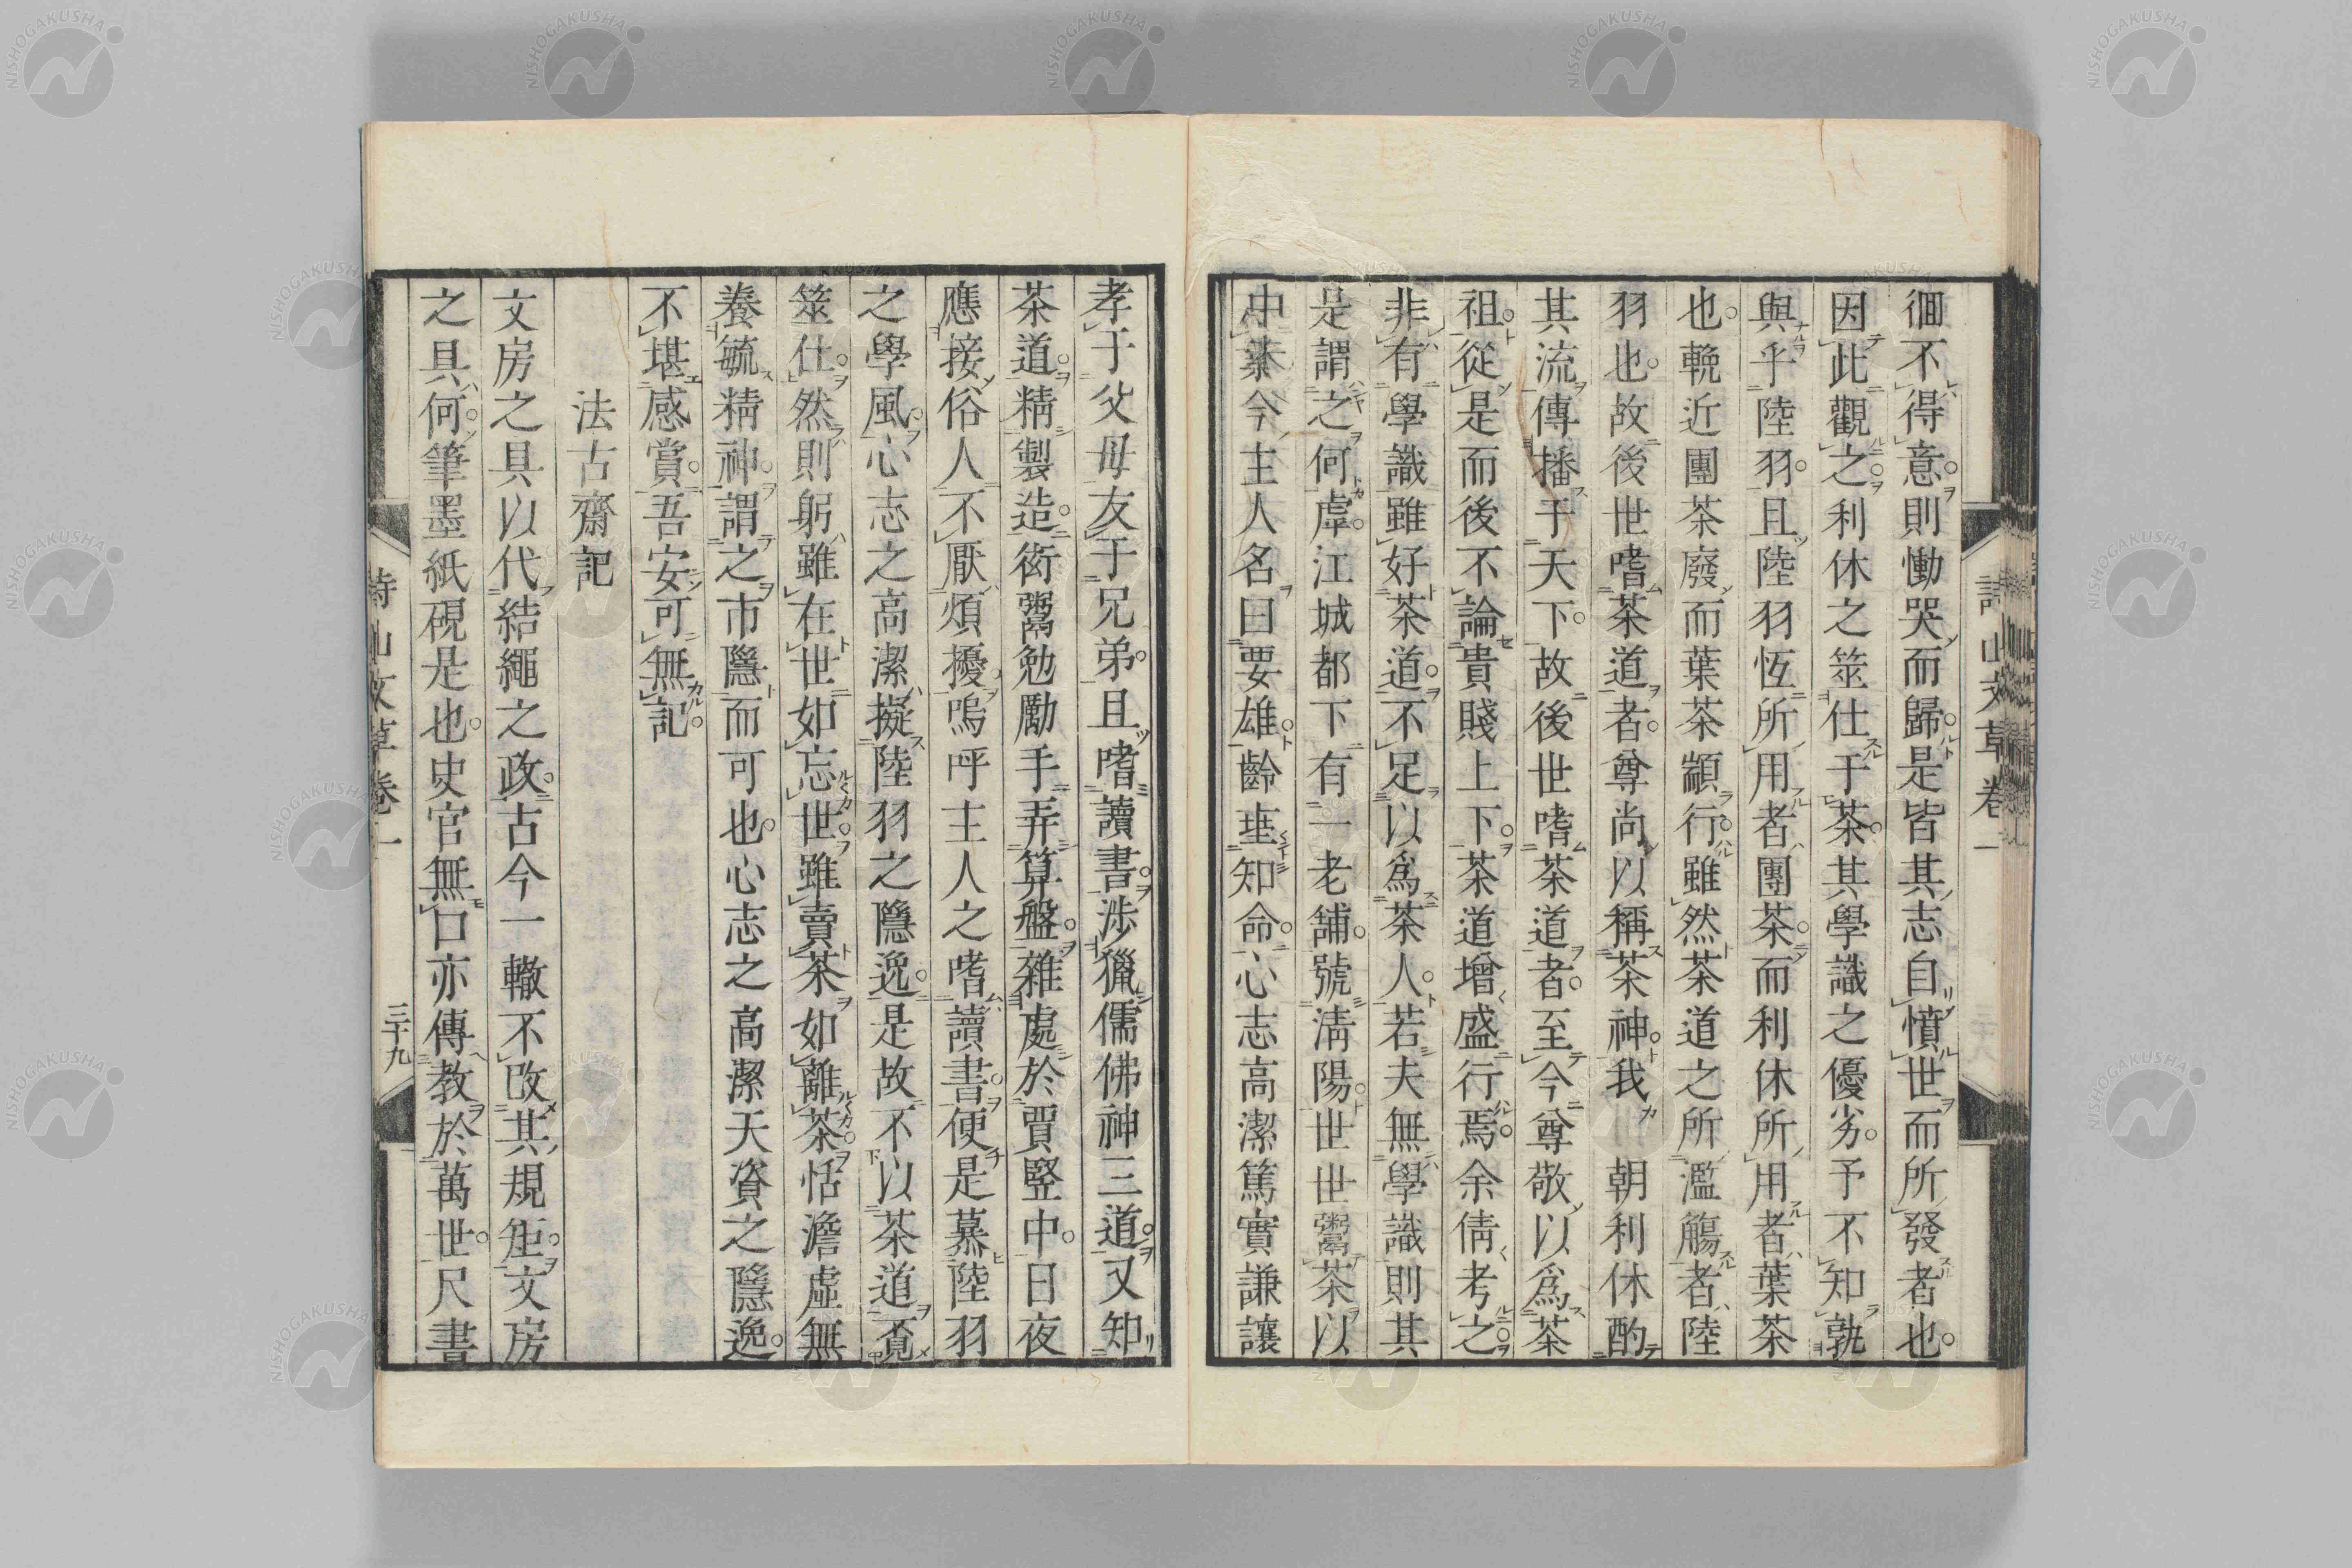 徊不得意則慟哭而歸是皆其志自憤世而所發者也
因此觀之利休之筮仕于茶其學識之優劣予不知孰
與乎陸羽且陸羽恆所用者團茶而利休所用者葉茶
也輓近團茶廢而葉茶顓行雖然茶道之所濫觴者陸
羽也故後世嗜茶道者尊尚以稱茶神我 朝利休酌
其流傳播于天下故後世嗜茶道者至今尊敬以爲茶
祖從是而後不論貴賤上下茶道增盛行焉余倩考之
非有學識雖好茶道不足以爲茶人若夫無學識則其
是謂之何虖江城都下有一老舖號淸陽世世鬻茶以
中今主人名曰要雄齡埀知命心志高潔篤實謙讓
詩山文草卷一
孝于父母友于兄弟且嗜讀書涉獵儒佛神三道又知
茶道精製造衒鬻勉勵手弄算盤雜處於賈豎中日夜
應接俗人不厭煩擾嗚呼主人之嗜讀書便是慕陸羽
之學風心志之高潔擬陸羽之隱逸是故不以茶道覔
筮仕然則躬雖在世如忘世雖賣茶如離茶恬澹虛無
養毓精神謂之市隱而可也心志之高潔天資之隱逸
不堪感賞吾安可無記
法古齋記
文房之具以代結繩之政古今一轍不改其規矩文房
之具何筆墨紙硯是也史官無口亦傳教於萬世尺書
詩山文草卷一
三十九
NISHOGAKUSHA